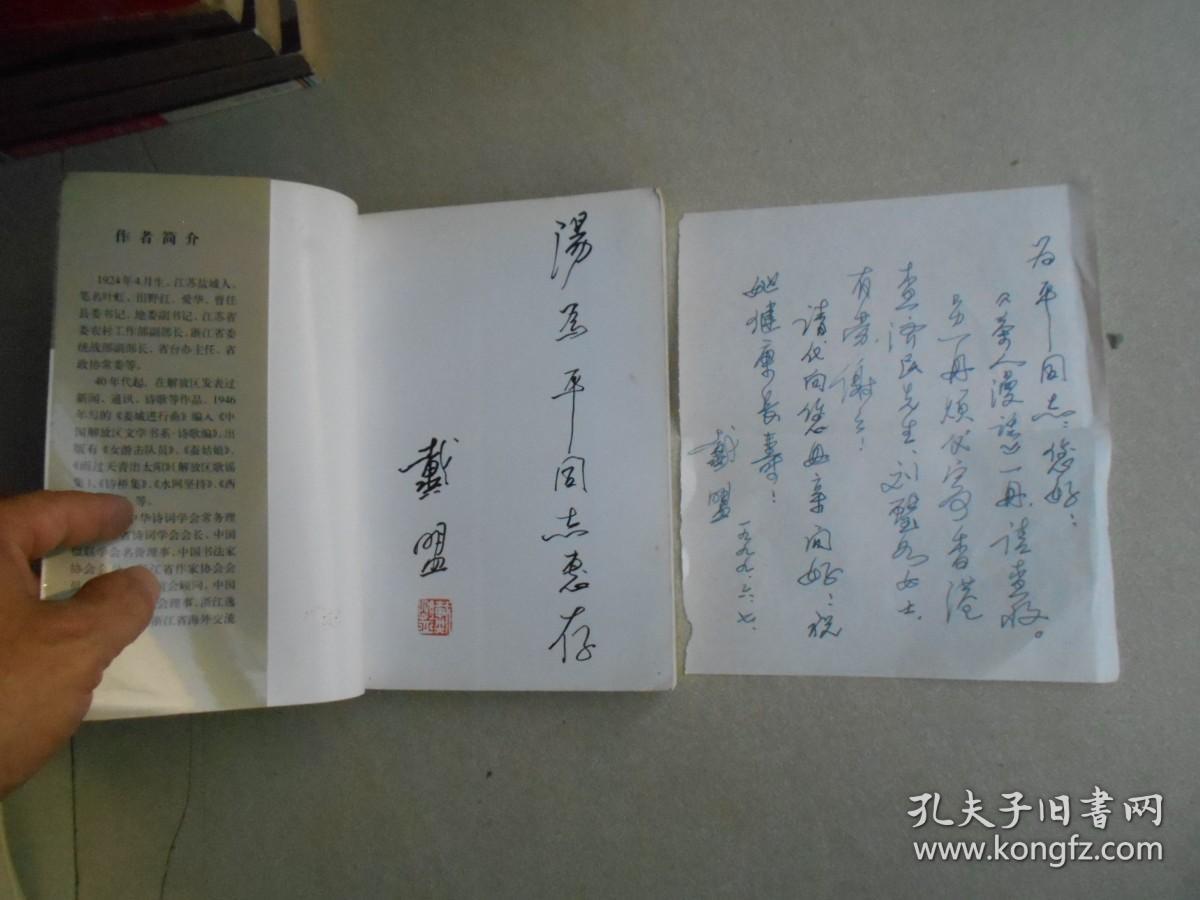 作者简介
1924年4月生，江苏盐城人，
笔名叶虹、田野红、爱华，曾任
县委书记、地委副书记、江苏省
委农村工作部副部长、浙江省委
统战部副部长、省台办主任、省
政协常委等。
40年代起，在解放区发表过
新闻、通讯、诗歌等作品，1946
年写的《姜城进行曲》编入《中
国解放区文学书系·诗歌编》，出
版有《女游击队员》、《蚕姑娘》、
《雨过天青出太阳》（解放区歌谣
集）、《诗桥集》、《水网坚持》、《西
等。
中华诗词学会常务理
省诗词学会会长，中国
楹联学会名誉理事，中国书法家
协会会
浙江省作家协会会
会顾问，中国
会理事，浙江逸
浙江省海外交流
汤为平同志惠存
戴盟
为平同志：您好！
《茶人漫话》一册，请查收。
另一册烦代寄香港
查济民先生、刘璧如女士，
有劳，谢谢！
请代向您母亲问好，祝
她健康长寿！
戴盟
一九九九.六.七.
孔夫子旧书网
www.kongfz.com